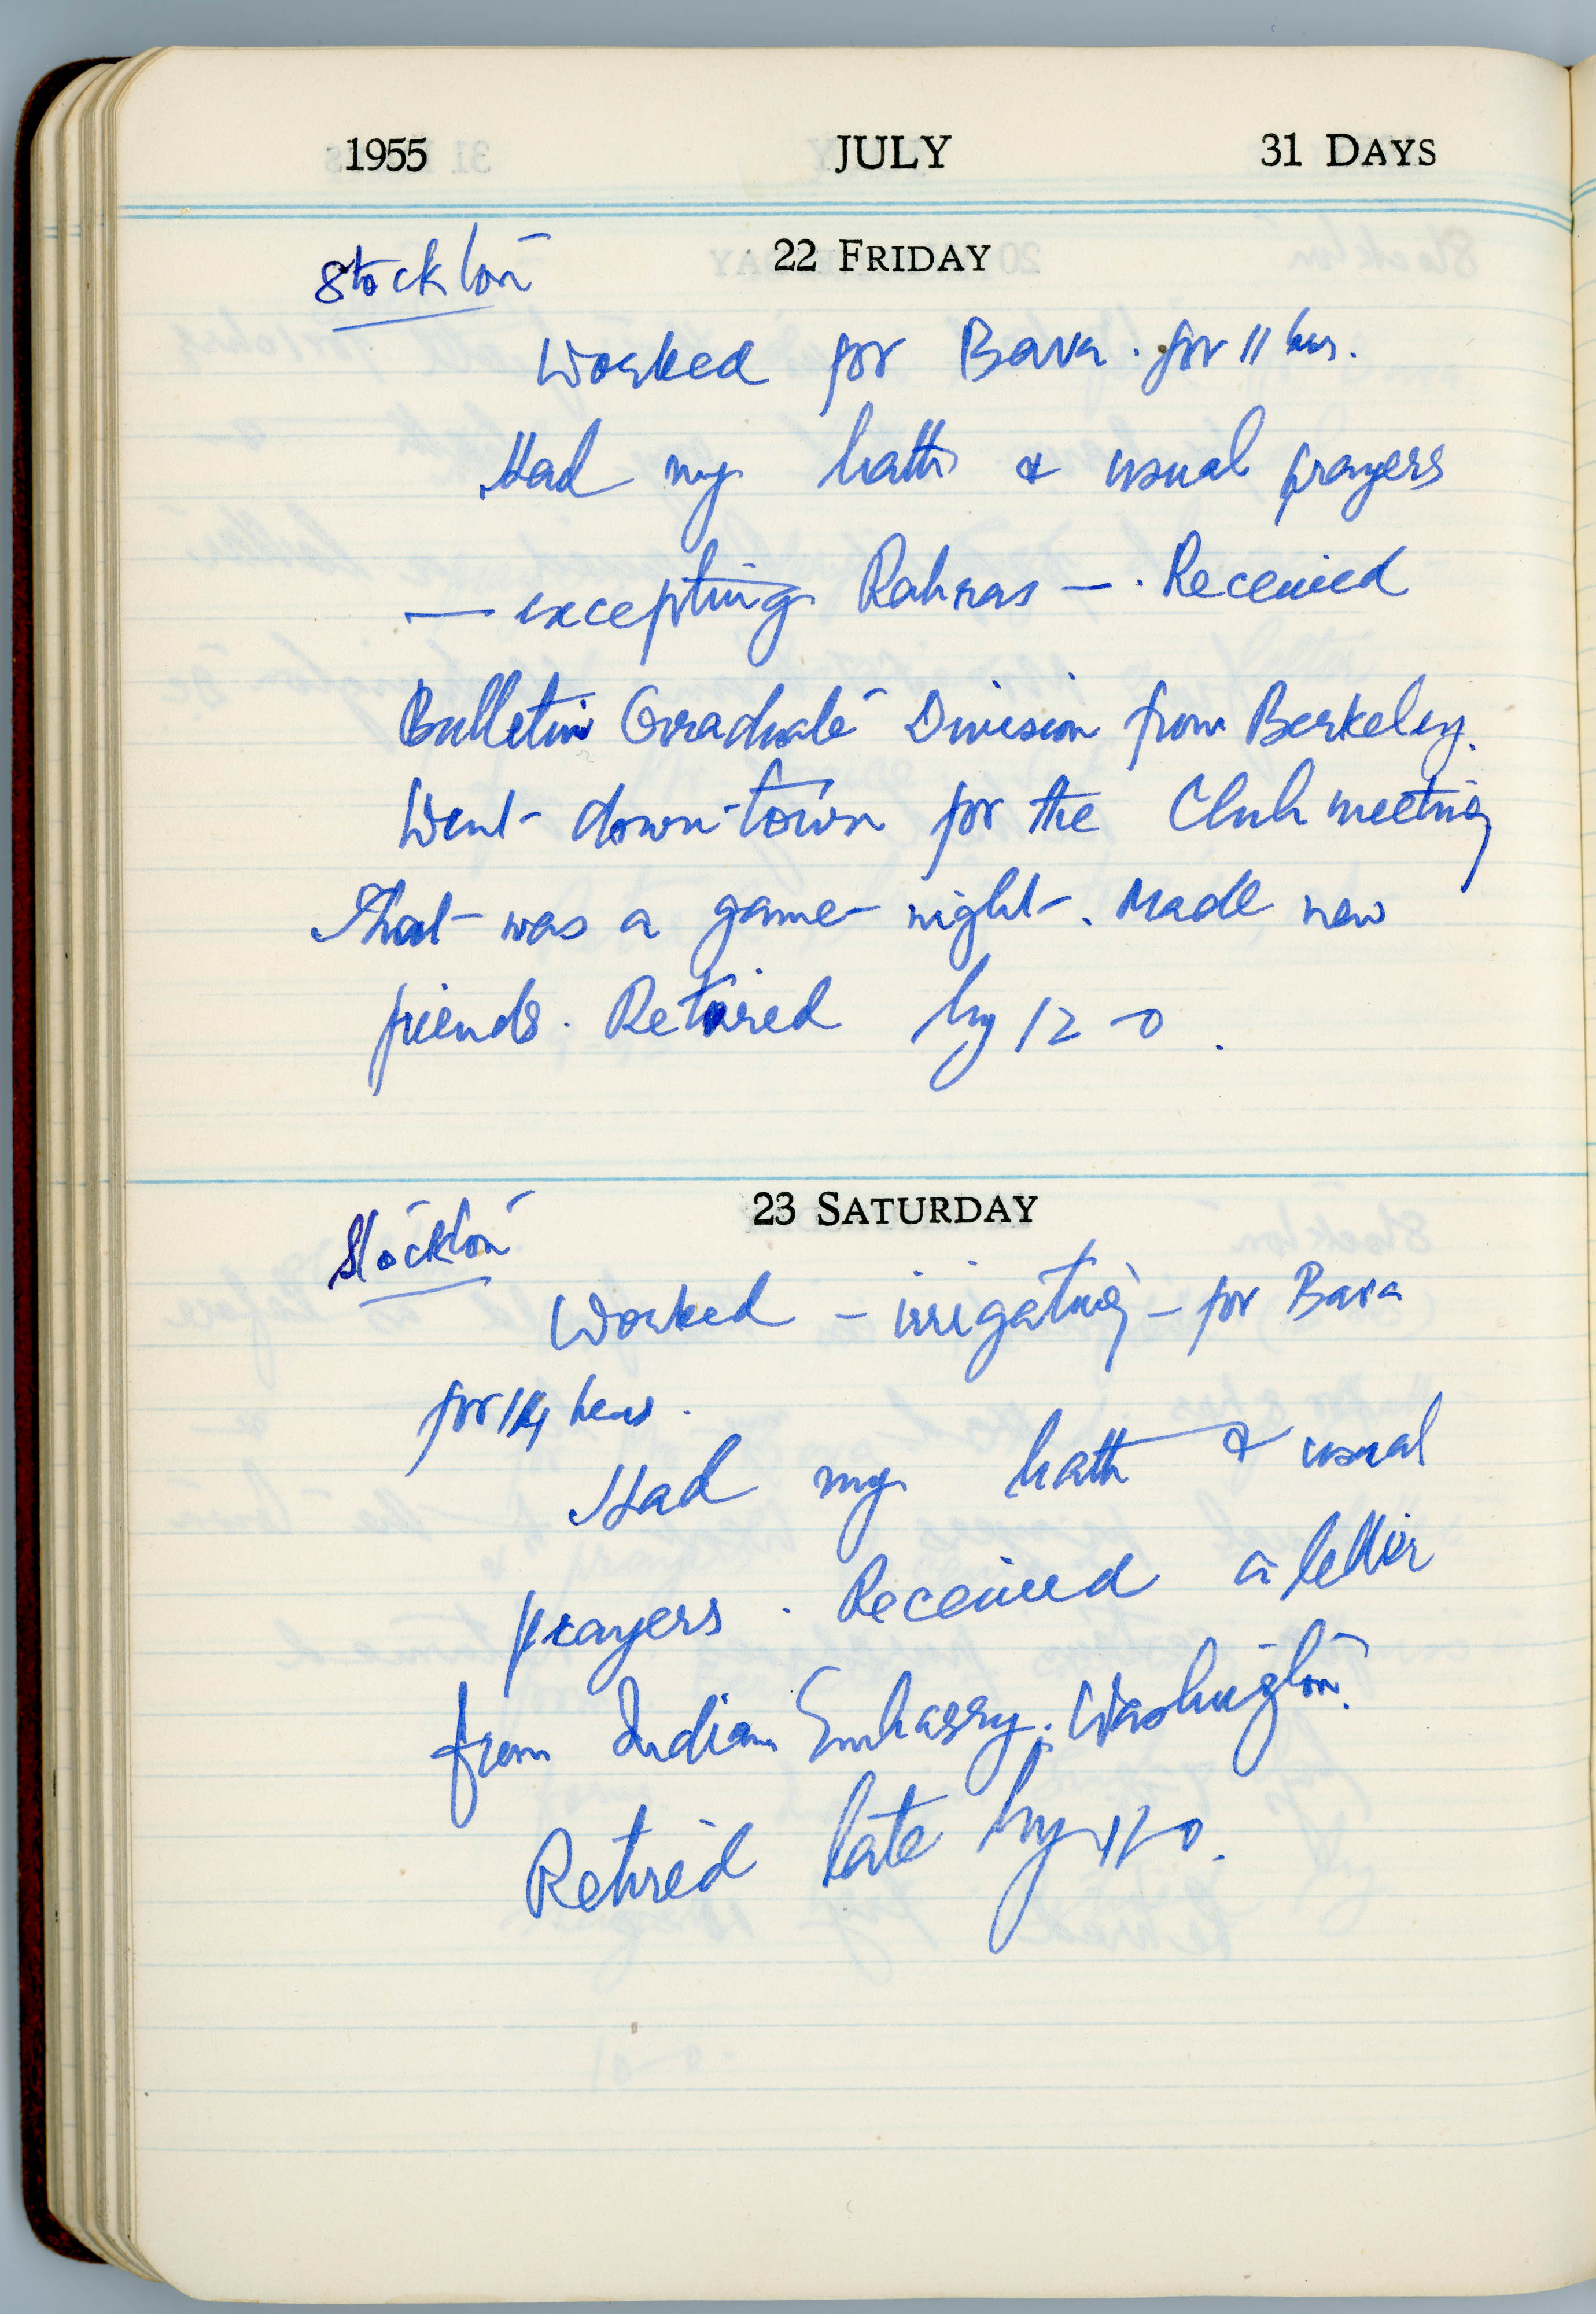 1955 JULY 31 DAYS
22 FRIDAY
Stockton
Worked for Bava. for 11 hrs.
Had my bath & usual prayers
— excepting Rahras —. Received
Bulletin Graduate Division from Berkeley.
Went down-town for the Club meeting
That was a game night. Made new
friends. Retired by 12-0.
23 SATURDAY
Stockton
Worked – irrigating – for Bava
for 14 hrs.
Had my bath & usual
prayers. Received a letter
from Indian Embassy, Washington.
Retired late by 11-0.